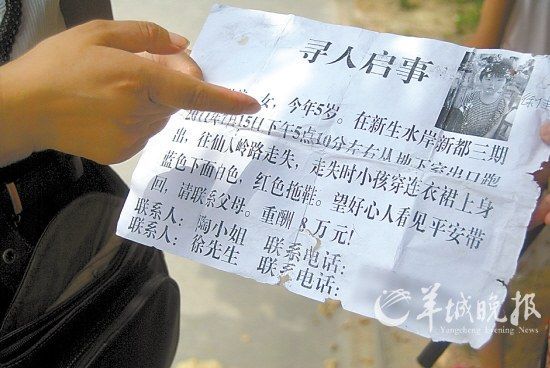 寻人启事
女，今年5岁。在新生水岸新都三期
15日下午5点10分左右从地下室出口跑
出，往仙人岭路走失，走失时小孩穿连衣裙上身
蓝色下面白色，红色拖鞋。望好心人看见平安带
回，请联系父母。重酬8万元！
联系人：陶小姐 联系电话：
联系人：徐先生 联系电话：
羊城晚报
Yangcheng Evening News